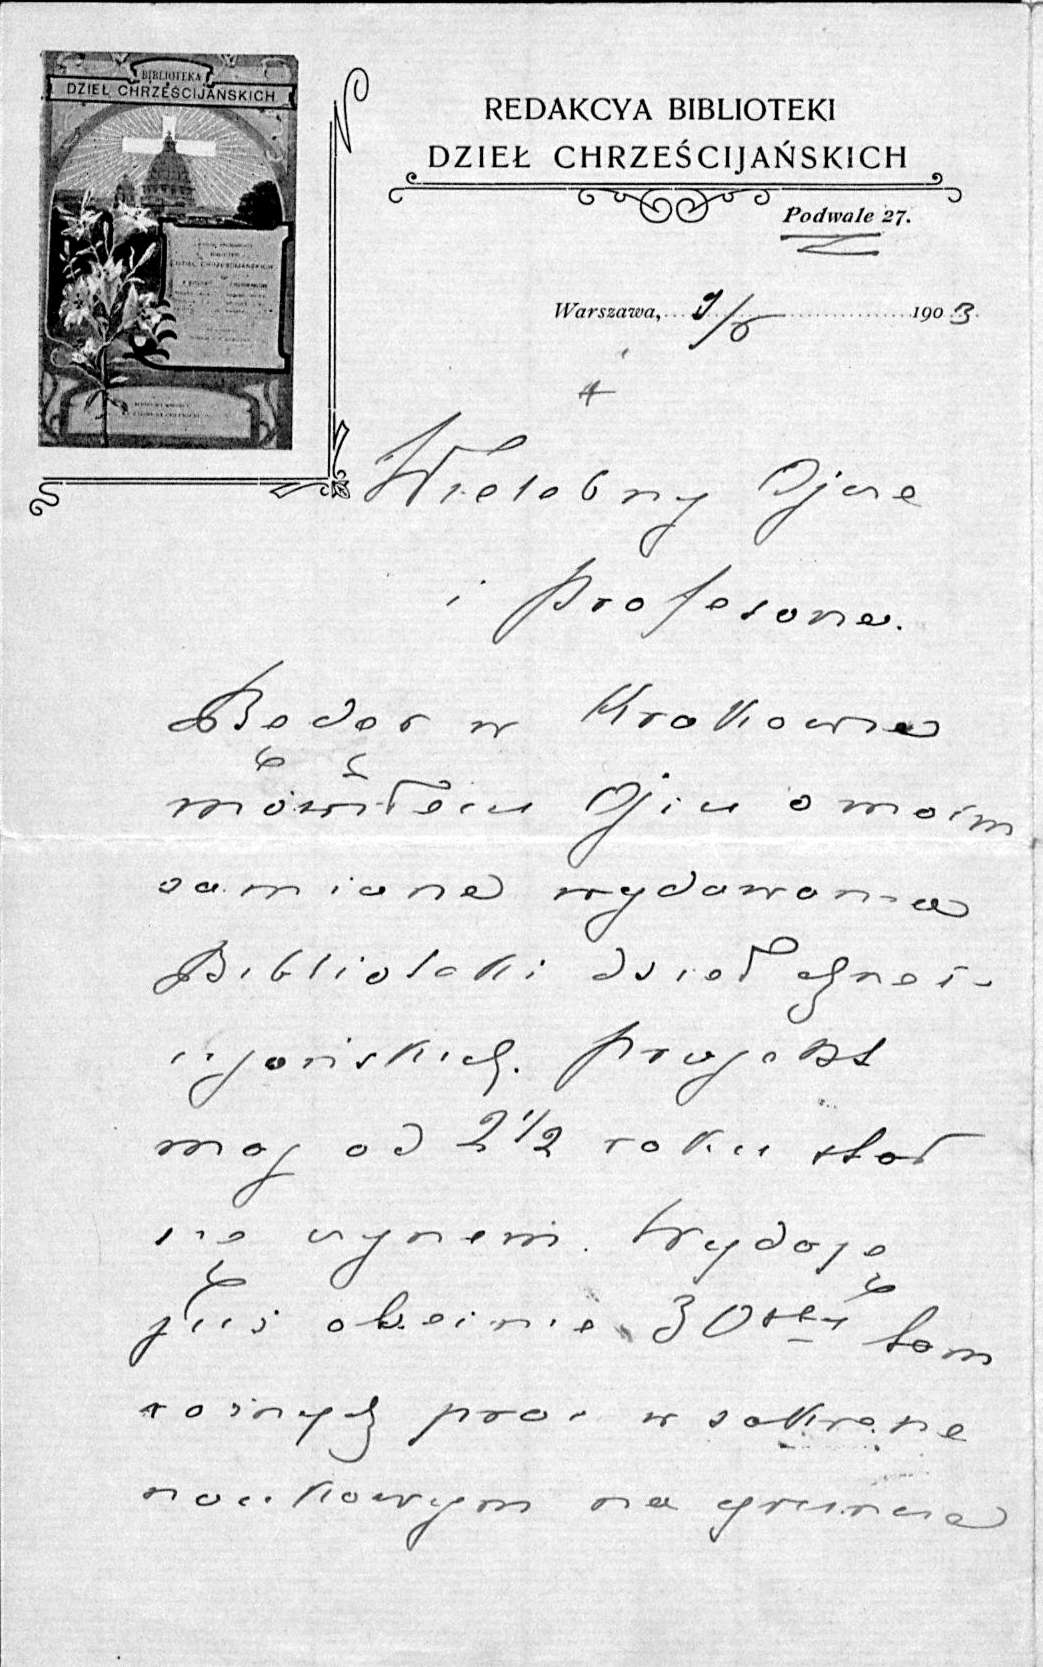 BIBLIOTEKA
DZIEŁ CHRZEŚCIJAŃSKICH
REDAKCYA BIBLIOTEKI
DZIEŁ CHRZEŚCIJAŃSKICH
Podwale 27.
Warszawa, 9/5 1903
Wielebny Ojcze
i Profesorze.
Będąc w Krakowie
mówiłem Ojcu o moim
zamiarze wydawania
Biblioteki dzieł chrześ-
cijańskich. Projekt
mój od 2 1/2 roku stał
się czynem. Wydaję
już obecnie 30sty tom
różnych prac w zakresie
naukowym na gruncie